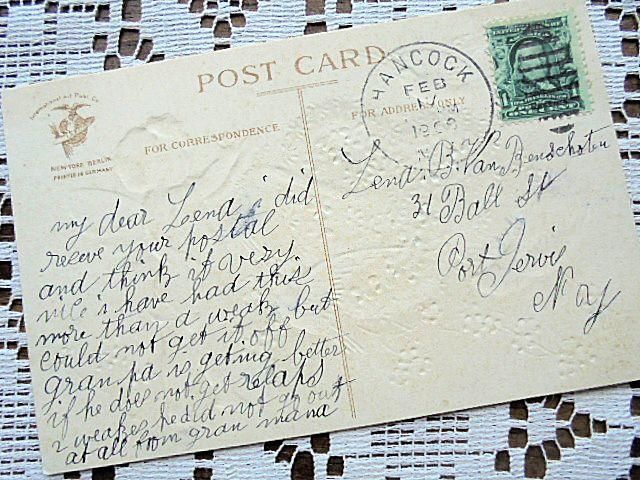 POST CARD
International Art Publ. Co.
NEW-YORK BERLIN
PRINTED IN GERMANY
FOR CORRESPONDENCE
FOR ADDRESS ONLY
HANCOCK
FEB
N.Y.
my dear Lena i did
receve your postal
and think it very
nice i have had this
more than a weak but
could not get it off
gran pa is geting better
if he does not get relaps
2 weakes he did not go out
at all from gran mama
Lena. B. Van Benschoten
31 Ball St
Port Jervis
N y